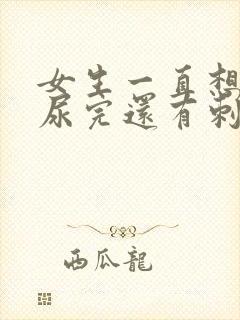 女生一直想
尿完還有刺
西瓜龍